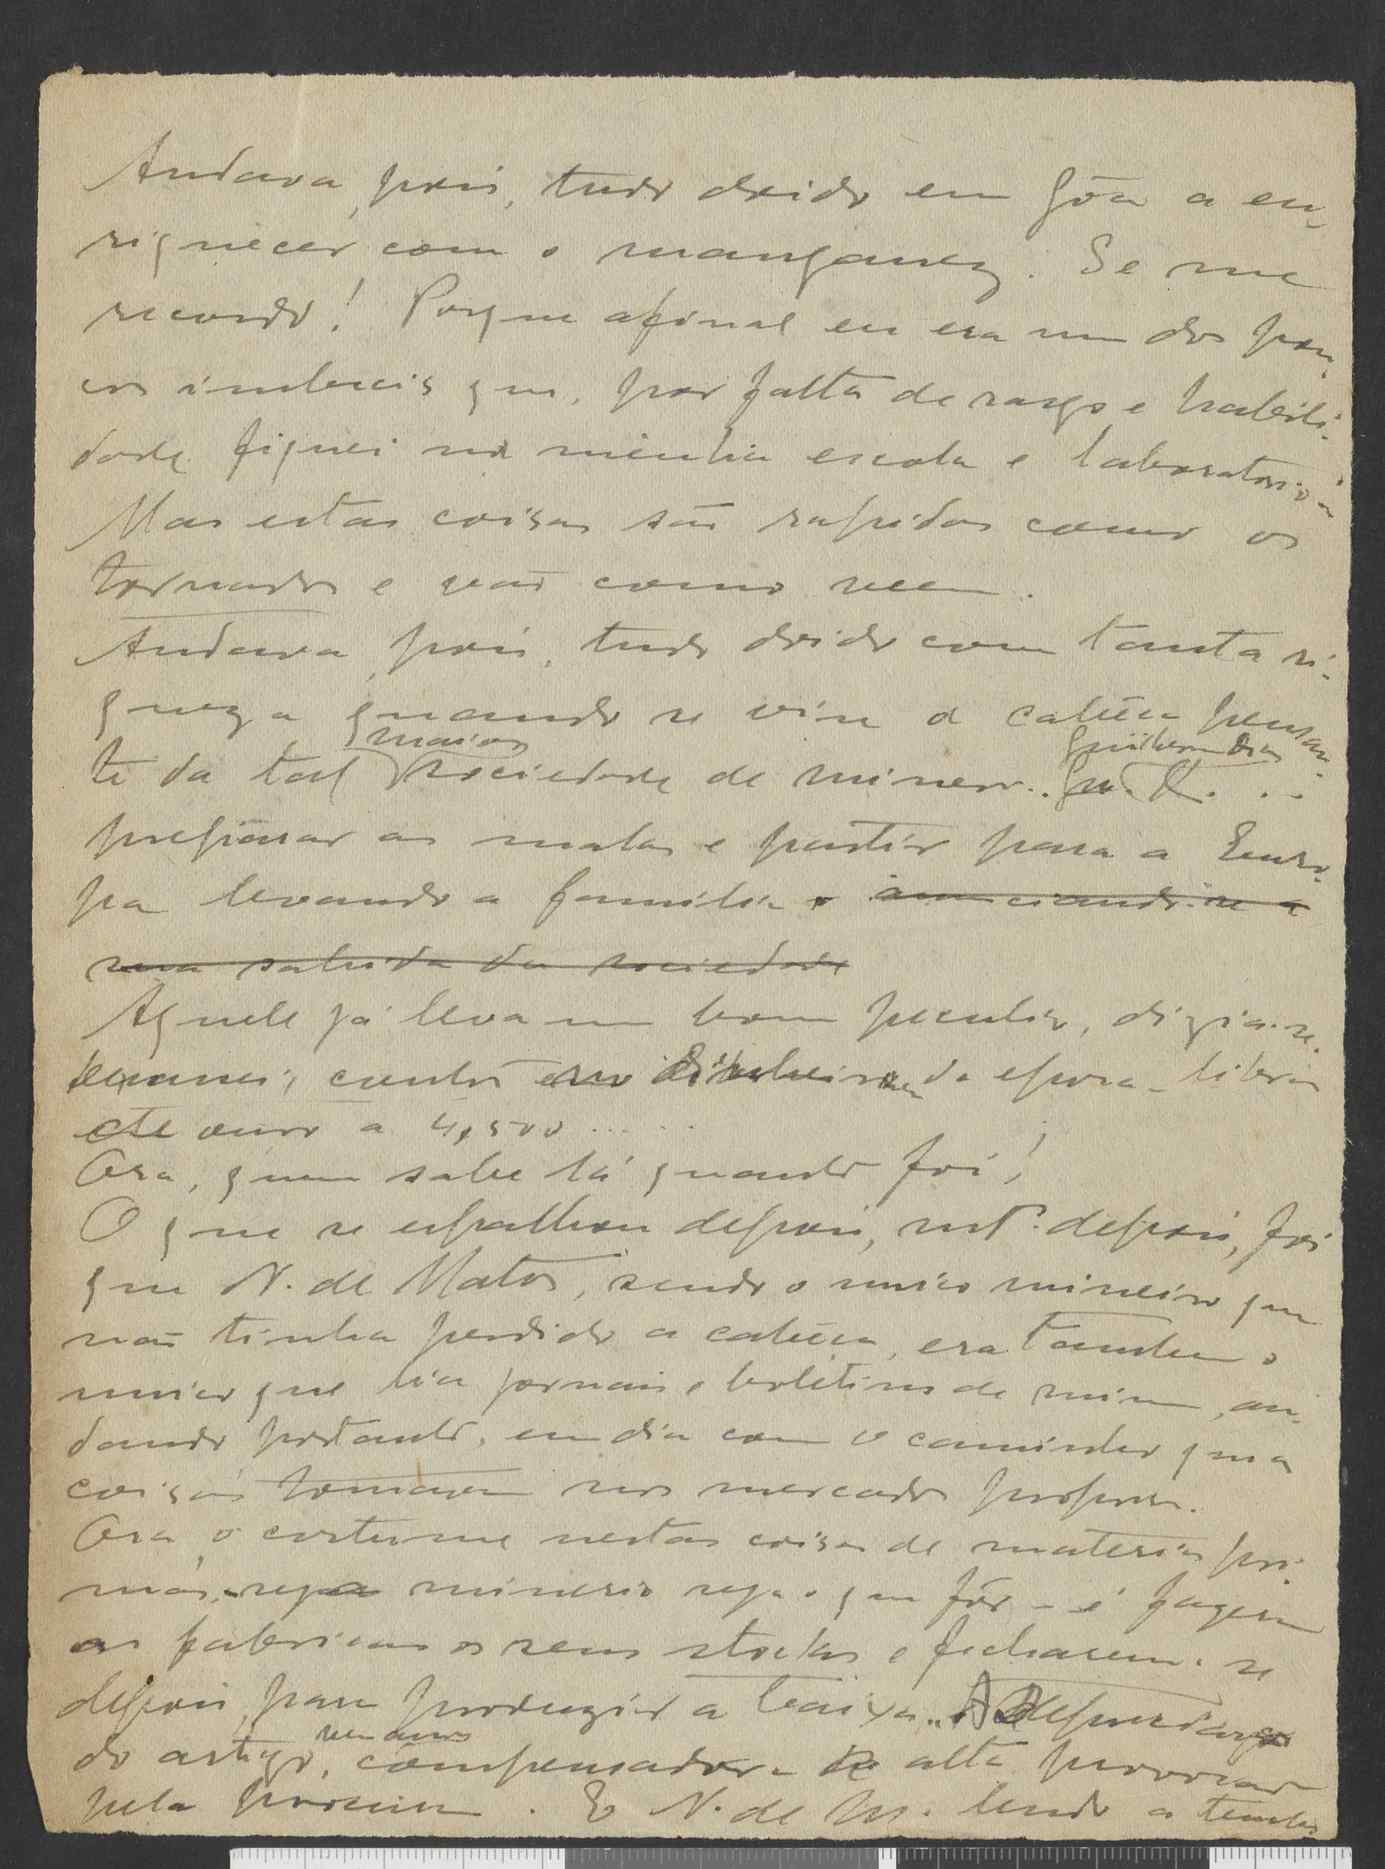 Andava, pois, tudo doido em Gôa a en-
riquecer com o manganez. Se me
recordo! Porque afinal eu era um dos pou-
cos imbecis que, por falta de rasgo e habili-
dade fiquei na minha escola e laboratorio
Mas estas coisas são rapidas como os
tornados e vão como veem.
Andava, pois, tudo doido com tanta ri-
queza quando se viu a cabeça pensan-
maior
te da tal sociedade de minero..
preparar as malas e partir para a Euro-
pa levando a familia e anunciando-se a
sua sahida da sociedade
Aquele já leva um bom peculio, dizia-se.
contos da epoca - libras
de ouro a 4,500 ......
Ora, quem sabe lá quanto foi!
O que se espalhou depois, mtº. depois, foi
que N. de Matos, sendo o unico mineiro que
não tinha perdido a cabeça, era tambem o
unico que lia jornais e boletins de minas, an-
dando portanto, em dia com o caminho que a
coisas tomavam nos mercados proprios.
Ora, o costume nestas coisas de materias pri-
mas, minerio seja o que fôr - é fazerem
as fabricas os seus stocks e fecharem-se
depois, para produzir a baixa..
do artigo, compensadora da alta provocada
pela procura. E N. de M. lendo a tempo